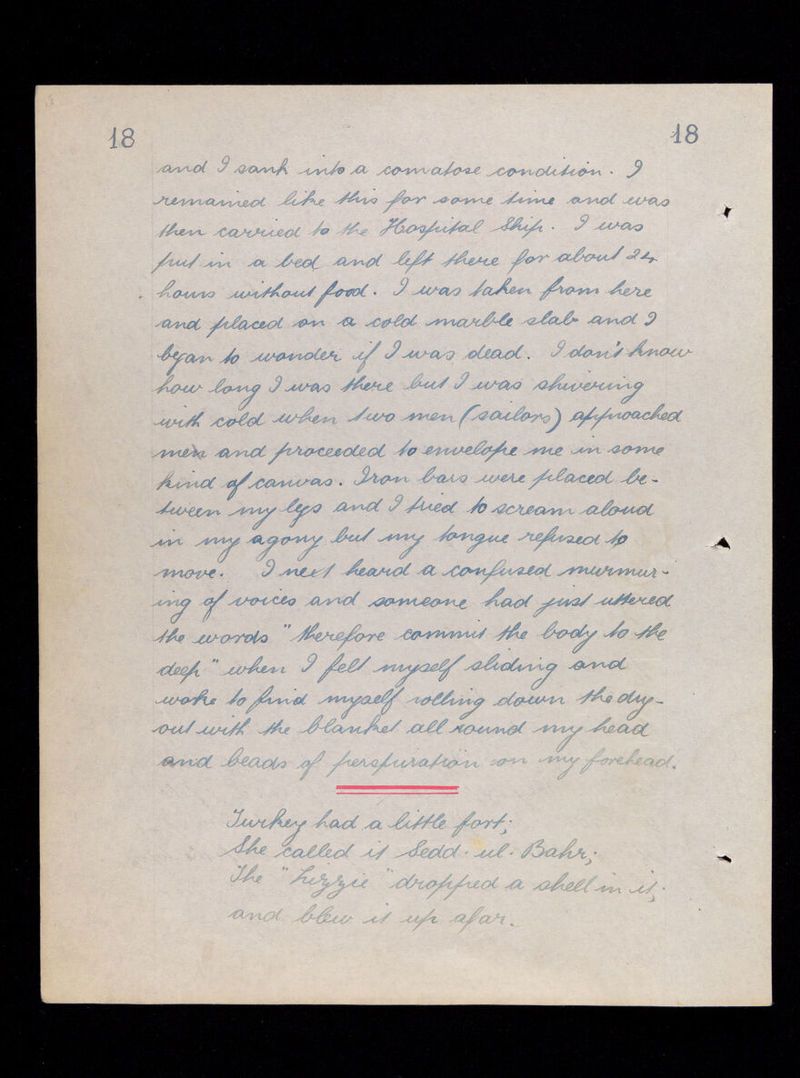 18 18
and I sank into a comatose condition. I
remained like this for some time and was
then carried to the Hospital Ship. I was
put in a bed and left there for about 24
hours without food. I was taken from here
and placed on a cold marble slab and I
began to wonder if I was dead. I don't know
how long I was there but I was shivering
with cold when two men (sailors) approached
men and proceeded to envelope me in some
kind of canvas. Iron bars were placed be-
tween my legs and I tried to scream aloud
in my agony but my tongue refused to
move. I next heard a confused murmur-
ing of voices and someone had just uttered
the words "therefore commit the body to the
deep" when I felt myself sliding and
woke to find myself rolling down the dug-
out with the blanket all round my head
and beads of perspiration on my forehead.
Turkey had a little fort;
She called it Sedd-ul-Bahr;
The "Lizzie" dropped a shell in it;
and blew it up afar.